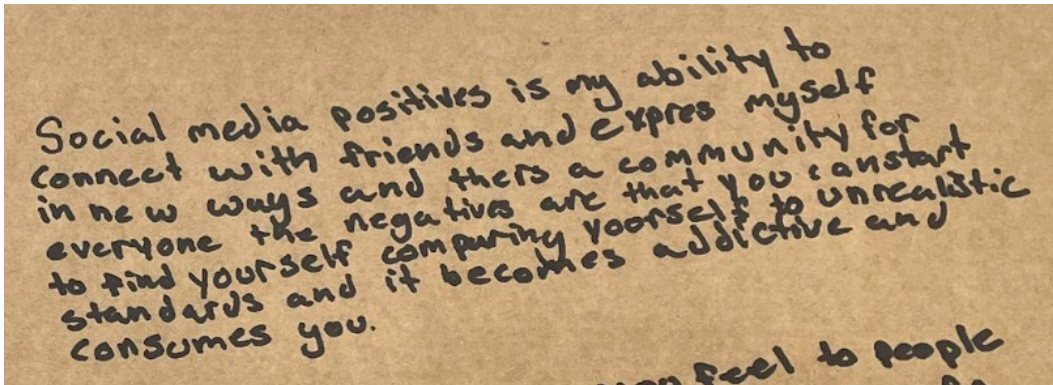 Social media positives is my ability to
connect with friends and expres myself
in new ways and thers a community for
everyone the negatives are that you can start
to find yourself comparing yourself to unrealistic
standards and it becomes addictive and
consumes you.
feel to people